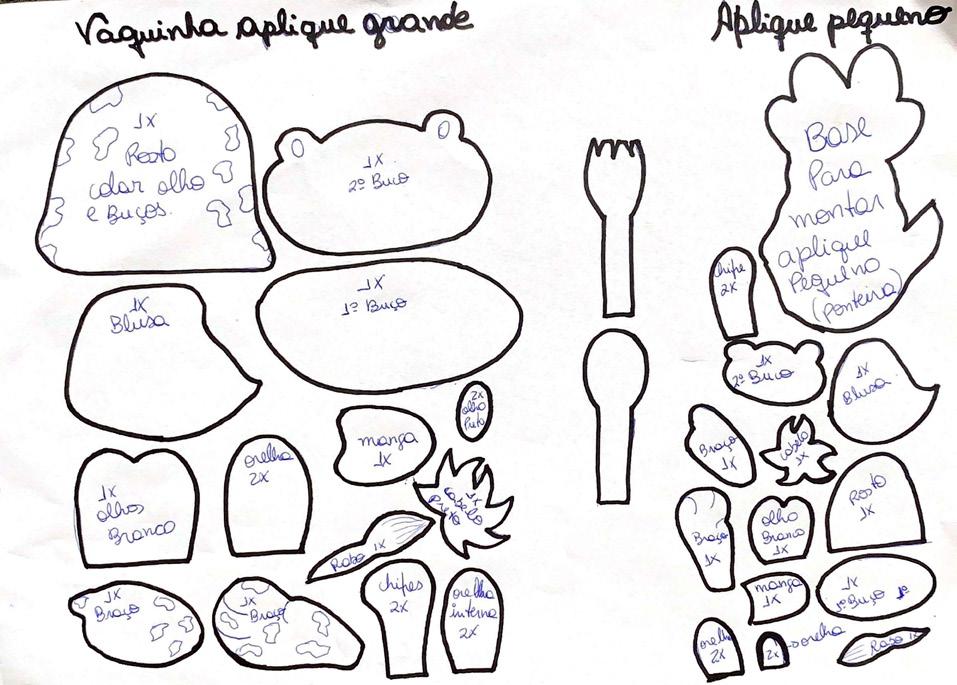 Vaquinha aplique grande
Aplique pequeno
1X
Rosto
colar olho
e Buços.
1X
2º Buço
1X
1º Buço
1X
Blusa
2X
olho
Preto
manga
1X
orelha
2X
1X
olhos
Branco
1X
Cabelo
Preto
Rabo 1X
1X
Braço
1X
Braço
chifres
2X
orelha
interna
2X
Base
Para
montar
aplique
Pequeno
(ponteira)
chifre
2X
1X
2º Buço
1X
Blusa
Braço
1X
cabelo
1X
Rosto
1X
Braço
1X
olho
Branco
1X
manga
1X
1X
1º Buço
orelha
2X
2X
orelha
Rabo 1X